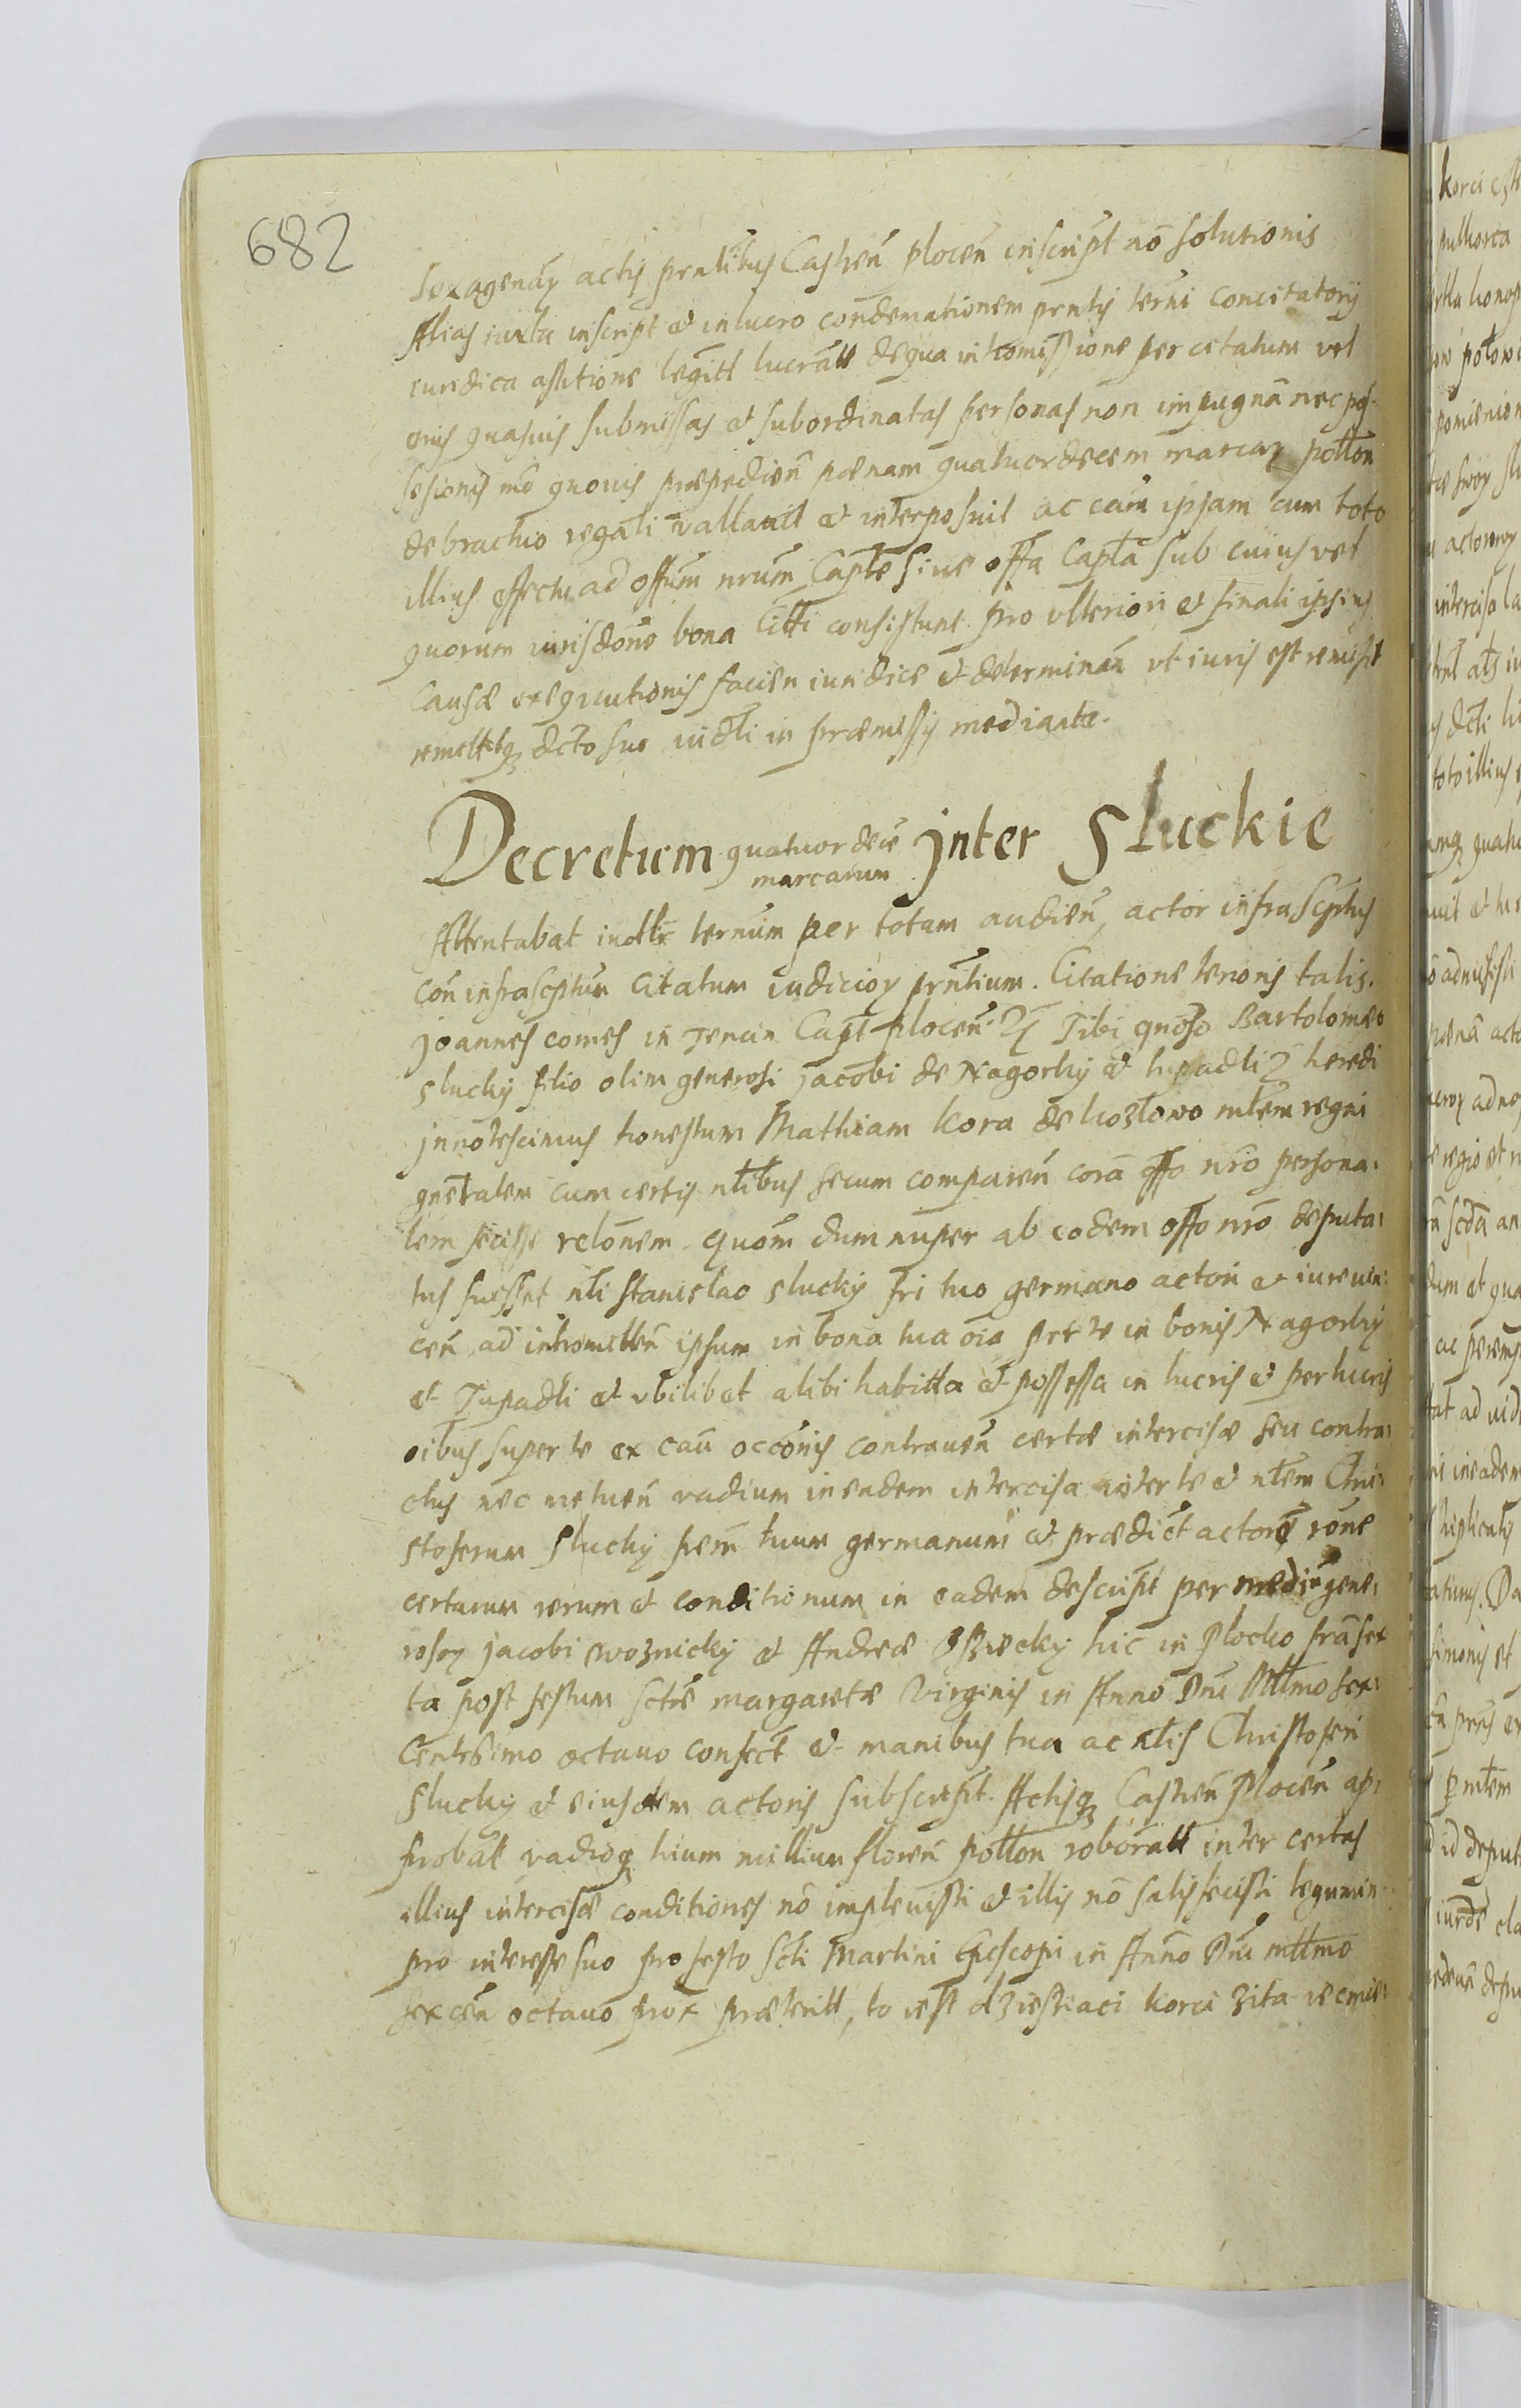 682
sexagenar actis prntibus Castren plocen inscript nō solutionis
Alias iuxta inscript et in lucro condemnationem prntis termi concitatorij
iuridica astitione legitt lucratt de qua intromissione per citatum vel
eius quasuis submissas et subordinatas personas non impugnā nec pos-
sesionis mō quouis præpedien pœnam quatuordecem marcar potton
de brachio regali vallauit et interposuit ac cām ipsam cum toto
illius effectu ad offum nrum Captle siue offa Captla sub cuius vel
quorum iurisdōne bona Citti consistunt pro vlteriori et finali ipsius
Causæ exequutionis facien iuridice et determinan vt iuris est remisit
remittitq dcto suo iudtli in præmissis mediante.
Decretum quatuordecē marcarum Inter Sluckie
Attentabat iudtlr ternum per totam audien, actor infrascptus
con infrascptum Citatum iudicior prntium. Citatione tenoris talis.
Joannes comes in Tencin Capt plocen. Tibi gnoso Bartolomeo
slucky filio olim generosi Jacobi de Nagorky et Lupadli heredi
Innotescimus honestum Mathiam Kora de kozłowo mtlem regni
gnetralem cum certis ntlibus secum comparen corā offo nrō persona-
lem fecisse relōnem. Quōm dum nuper ab eodem offo nrō deputa-
tus fuisset ntli Stanislao slucky fri tuo germano actori et iureuin-
cen, ad intromitten ipsum in bona tua oīa per te in bonis Nagorky
et Lupadli et vbilibet alibi habitta et possessa in lucris et perlucris
oibus super te ex cau occōnis contrauen certæ intercisæ seu contra-
ctus nec metuen vadium in eadem intercisa inter te et ntlem Chri-
stoferum Slucky frem tuum germanum et prædict actorē rōne
certarum rerum et conditionum in eadem descript per mediū gene-
rosor Jacobi Woznicky et Andreæ hic in Plocko fra sex
ta post festum sctæ margaretæ Virginis in Anno Dni Mtlmo sex-
Centesimo octauo confect et manibus tua ac ntlis Christoferi
Slucky et eiusdem actoris subscript. Actisq Castren Plocen ap-
probat vadioq trium millium floren potton roboratt inter certas
illius intercisæ conditiones nō impleuisti et illis nō satisfecisti legumin
pro interesse suo pro festo Scti Martini Episcopi in Anno Dni mtlmo
sexcen octauo prox præteritt, to iest dziesiaci korci zita iecmie-